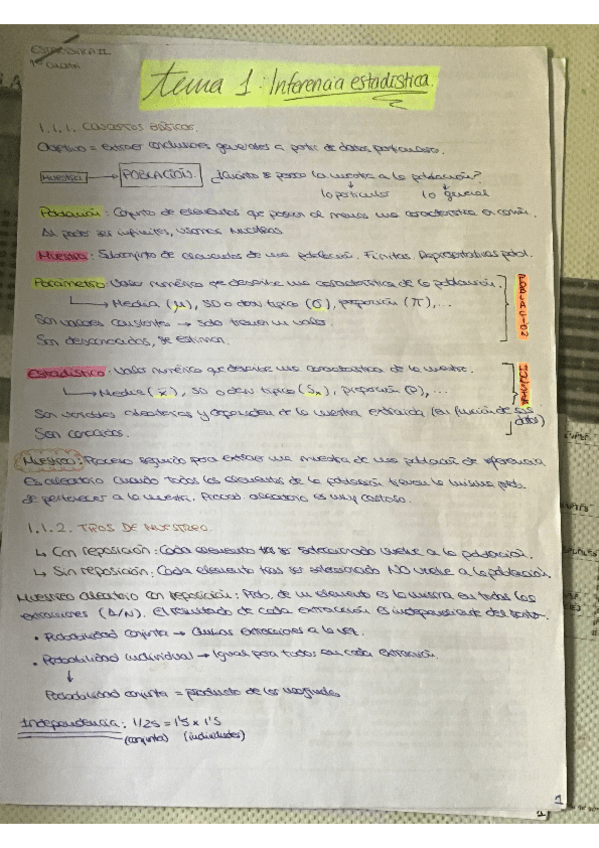 ESTADÍSTICA II
1er CUATRI
tema 1: Inferencia estadística.
1.1.1. CONCEPTOS BÁSICOS.
Objetivo = extraer conclusiones generales a partir de datos particulares.
MUESTRA → POBLACIÓN. ¿Cuánto se parece la muestra a la población?
lo particular lo general
Población: Conjunto de elementos que poseen al menos una característica en común.
Al poder ser infinitos, usamos muestras
Muestra: Subconjunto de elementos de una población. Finitas. Representativas pobl.
Parámetro: Valor numérico que describe una característica de la población.
→ Media (μ), SD o desv. típica (σ), proporción (π),...
Son valores constantes → solo tienen un valor.
Son desconocidos, se estiman.
POBLACIÓN
Estadístico: Valor numérico que describe una característica de la muestra.
→ Media (x̄), SD o desv. típica (Sx), proporción (P),...
Son variables aleatorias y dependen de la muestra extraída (en función de sus datos)
Son conocidos.
MUESTRA
Muestreo: Proceso seguido para extraer una muestra de una población de referencia
Es aleatorio cuando todos los elementos de la población tienen la misma prob.
de pertenecer a la muestra. Proceso aleatorio es muy costoso.
1.1.2. TIPOS DE MUESTREO
↳ Con reposición: Cada elemento tras ser seleccionado vuelve a la población.
↳ Sin reposición: Cada elemento tras ser seleccionado NO vuelve a la población.
Muestreo aleatorio con reposición: Prob. de un elemento es la misma en todas las
extracciones (1/N). El resultado de cada extracción es independiente del
• Probabilidad conjunta → Ambas extracciones a la vez.
• Probabilidad individual → Igual para todos en cada extracción.
↓
Probabilidad conjunta = producto de las
Independencia: 1/25 = 1/5 x 1/5
(conjunta) (individuales)
1